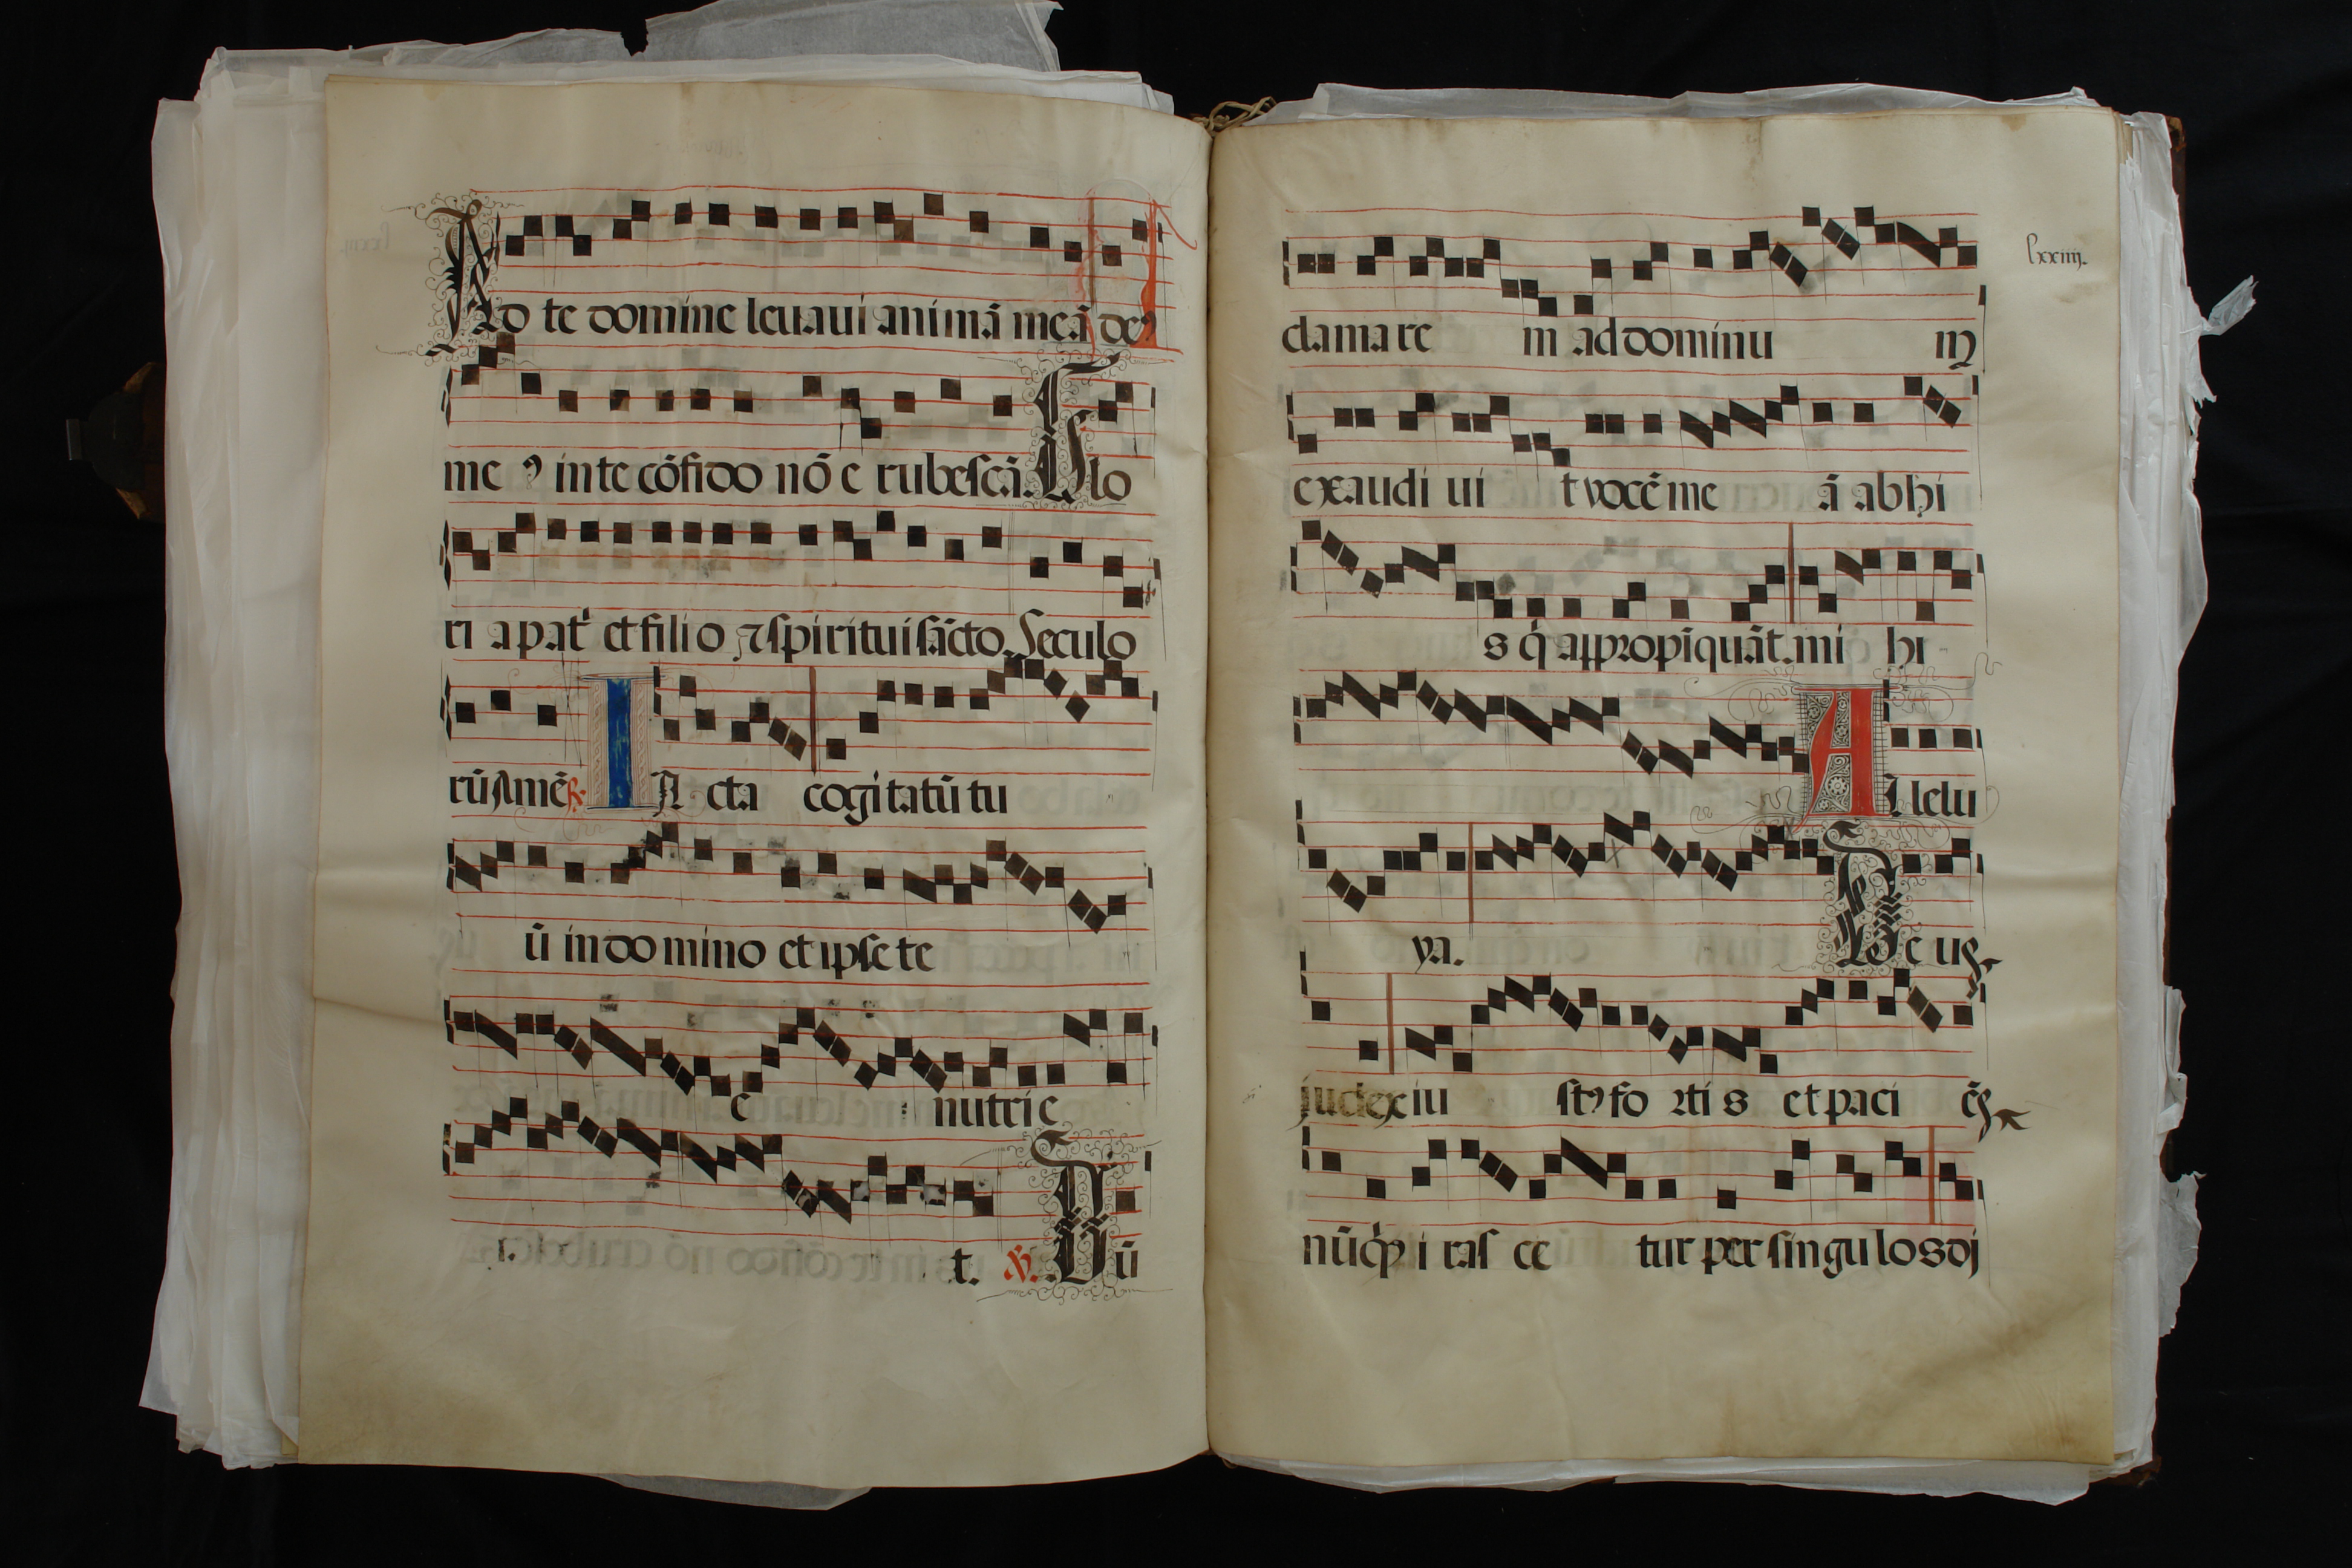 Ad te domine leuaui animā meā de⁹
me ⁊ in te cōfido nō e rubescā. Glo
ri a pat et fili o ⁊ spiritui sācto. Seculo
rū Amē ℟. IA cta cogitatū tu
ū in do mino et ipse te
e nutri e
t. ℣. Dū
lxxiiij.
clama re m ad dominu m
exaudi ui t vocē me ā ab hi
s q̇ appropīquāt mi hi
A lle lu
ya. De us
judex iu st⁹ fo rti s et paci ēs
nūq̇ i ras ce tur per singu los dj